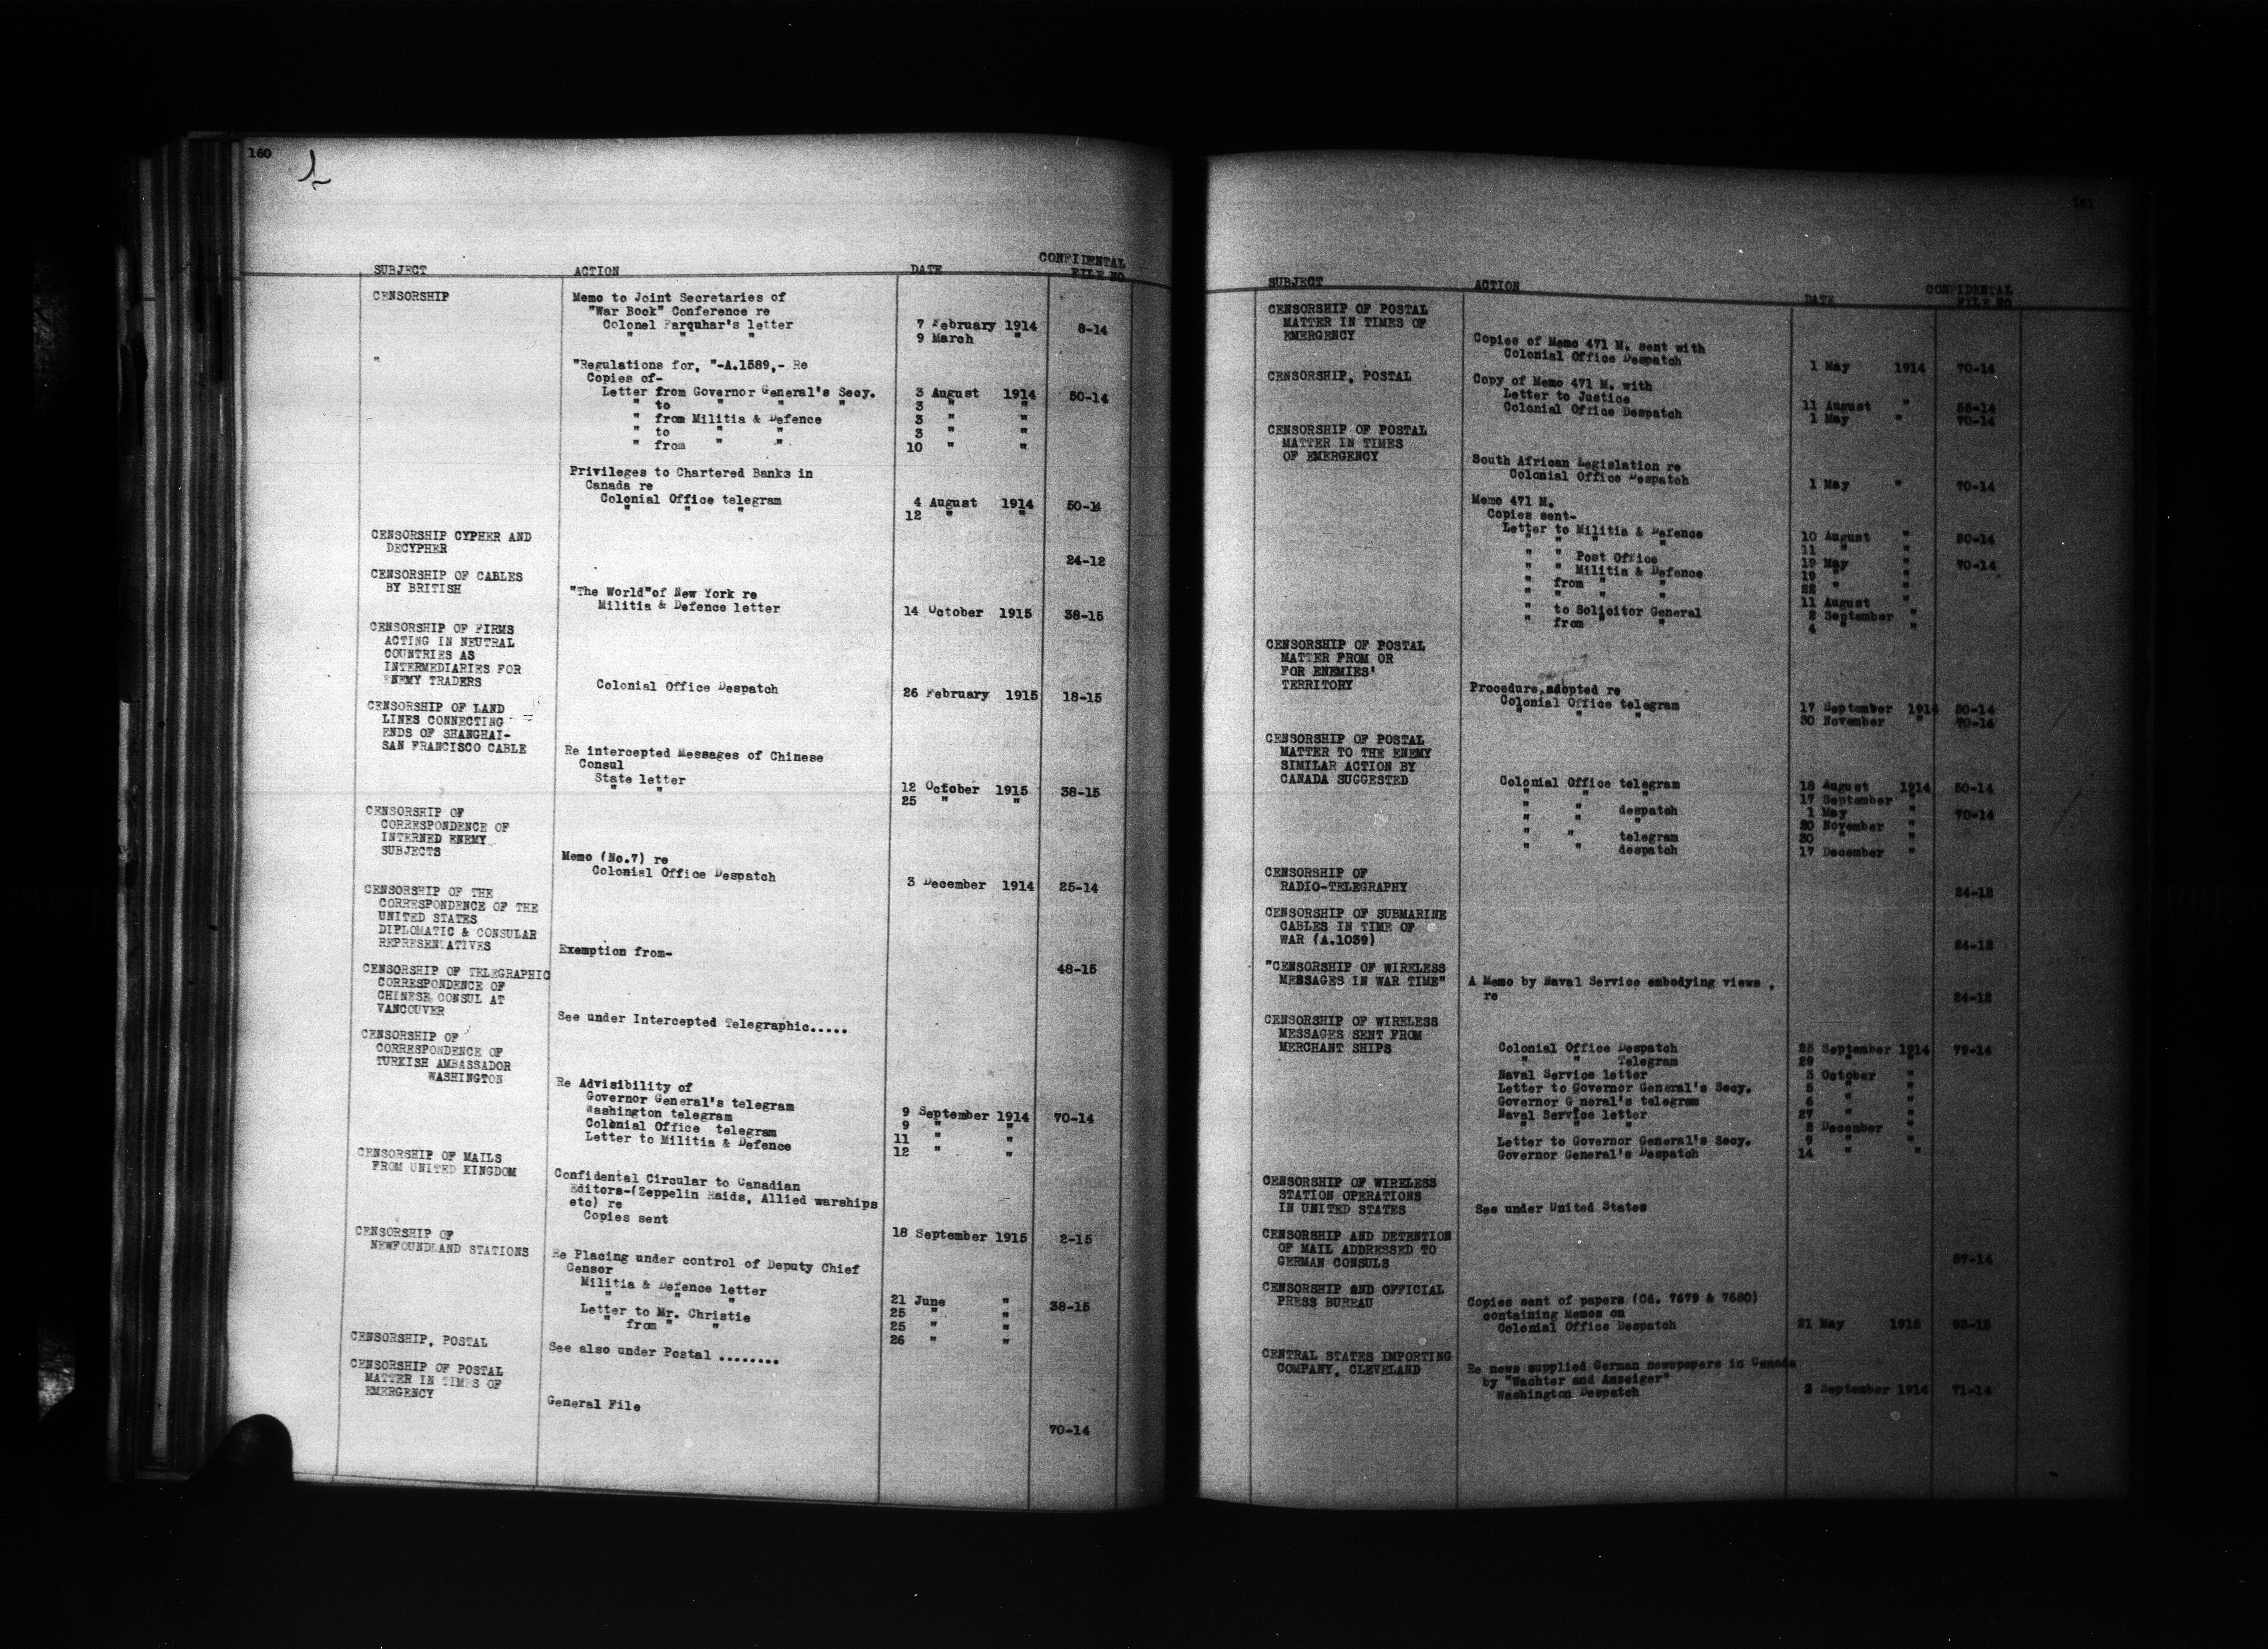 160
SUBJECT ACTION DATE CONFIDENTAL FILE NO
CENSORSHIP Memo to Joint Secretaries of
"War Book" Conference re
Colonel Farquhar's letter 7 February 1914 8-14
" " " 9 March "
" "Regulations for, "-A.1589,- Re
Copies of-
Letter from Governor General's Secy. 3 August 1914 50-14
" to " " " 3 " "
" from Militia & Defence 3 " "
" to " " 3 " "
" from " " 10 " "
Privileges to Chartered Banks in
Canada re
Colonial Office telegram 4 August 1914 50-14
" " " 12 " "
CENSORSHIP CYPHER AND
DECYPHER 24-12
CENSORSHIP OF CABLES
BY BRITISH "The World"of New York re
Militia & Defence letter 14 October 1915 38-15
CENSORSHIP OF FIRMS
ACTING IN NEUTRAL
COUNTRIES AS
INTERMEDIARIES FOR
ENEMY TRADERS Colonial Office Despatch 26 February 1915 18-15
CENSORSHIP OF LAND
LINES CONNECTING
ENDS OF SHANGHAI-
SAN FRANCISCO CABLE Re intercepted Messages of Chinese
Consul
State letter 12 October 1915 38-15
" " 25 " "
CENSORSHIP OF
CORRESPONDENCE OF
INTERNED ENEMY
SUBJECTS Memo (No.7) re
Colonial Office Despatch 3 December 1914 25-14
CENSORSHIP OF THE
CORRESPONDENCE OF THE
UNITED STATES
DIPLOMATIC & CONSULAR
REPRESENTATIVES Exemption from- 48-15
CENSORSHIP OF TELEGRAPHIC
CORRESPONDENCE OF
CHINESE CONSUL AT
VANCOUVER See under Intercepted Telegraphic.....
CENSORSHIP OF
CORRESPONDENCE OF
TURKISH AMBASSADOR
WASHINGTON Re Advisibility of
Governor General's telegram 9 September 1914 70-14
Washington telegram 9 " "
Colonial Office telegram 11 " "
Letter to Militia & Defence 12 " "
CENSORSHIP OF MAILS
FROM UNITED KINGDOM Confidental Circular to Canadian
Editors-(Zeppelin Raids, Allied warships
etc) re
Copies sent 18 September 1915 2-15
CENSORSHIP OF
NEWFOUNDLAND STATIONS Re Placing under control of Deputy Chief
Censor
Militia & Defence letter 21 June " 38-15
" " " 25 " "
Letter to Mr. Christie 25 " "
" from " " 26 " "
CENSORSHIP, POSTAL See also under Postal ........
CENSORSHIP OF POSTAL
MATTER IN TIMES OF
EMERGENCY General File 70-14
161
SUBJECT ACTION DATE CONFIDENTAL FILE NO
CENSORSHIP OF POSTAL
MATTER IN TIMES OF
EMERGENCY Copies of Memo 471 M. sent with
Colonial Office Despatch 1 May 1914 70-14
CENSORSHIP, POSTAL Copy of Memo 471 M. with
Letter to Justice 11 August "
Colonial Office Despatch 1 May " 70-14
CENSORSHIP OF POSTAL
MATTER IN TIMES
OF EMERGENCY South African Legislation re
Colonial Office Despatch 1 May " 70-14
Memo 471 M.
Copies sent-
Letter to Militia & Defence 10 August " 50-14
" " " " 11 " "
" " Post Office 19 May " 70-14
" " Militia & Defence 19 " "
" from " " 22 " "
" " " " 11 August "
" to Solicitor General 2 September "
" from " " 4 " "
CENSORSHIP OF POSTAL
MATTER FROM OR
FOR ENEMIES'
TERRITORY Procedure adopted re
Colonial Office telegram 17 September 1914 50-14
" " " 30 November " 70-14
CENSORSHIP OF POSTAL
MATTER TO THE ENEMY
SIMILAR ACTION BY
CANADA SUGGESTED Colonial Office telegram 18 August 1914 50-14
" " " 17 September "
" " despatch 1 May " 70-14
" " " 20 November "
" " telegram 30 " "
" " despatch 17 December "
CENSORSHIP OF
RADIO-TELEGRAPHY 24-12
CENSORSHIP OF SUBMARINE
CABLES IN TIME OF
WAR (A.1039) 24-12
"CENSORSHIP OF WIRELESS
MESSAGES IN WAR TIME" A Memo by Naval Service embodying views ,
re 24-12
CENSORSHIP OF WIRELESS
MESSAGES SENT FROM
MERCHANT SHIPS Colonial Office Despatch 25 September 1914 79-14
" " Telegram 29 " "
Naval Service letter 3 October "
Letter to Governor General's Secy. 5 " "
Governor G neral's telegram 6 " "
Naval Service letter 27 " "
" " " 2 December "
Letter to Governor General's Secy. 9 " "
Governor General's Despatch 14 " "
CENSORSHIP OF WIRELESS
STATION OPERATIONS
IN UNITED STATES See under United States
CENSORSHIP AND DETENTION
OF MAIL ADDRESSED TO
GERMAN CONSULS 87-14
CENSORSHIP AND OFFICIAL
PRESS BUREAU Copies sent of papers (Cd. 7679 & 7680)
containing Memos on
Colonial Office Despatch 21 May 1915 93-15
CENTRAL STATES IMPORTING
COMPANY, CLEVELAND Re news supplied German newspapers in Canada
by "Wachter and Anzeiger"
Washington Despatch 2 September 1914 71-14